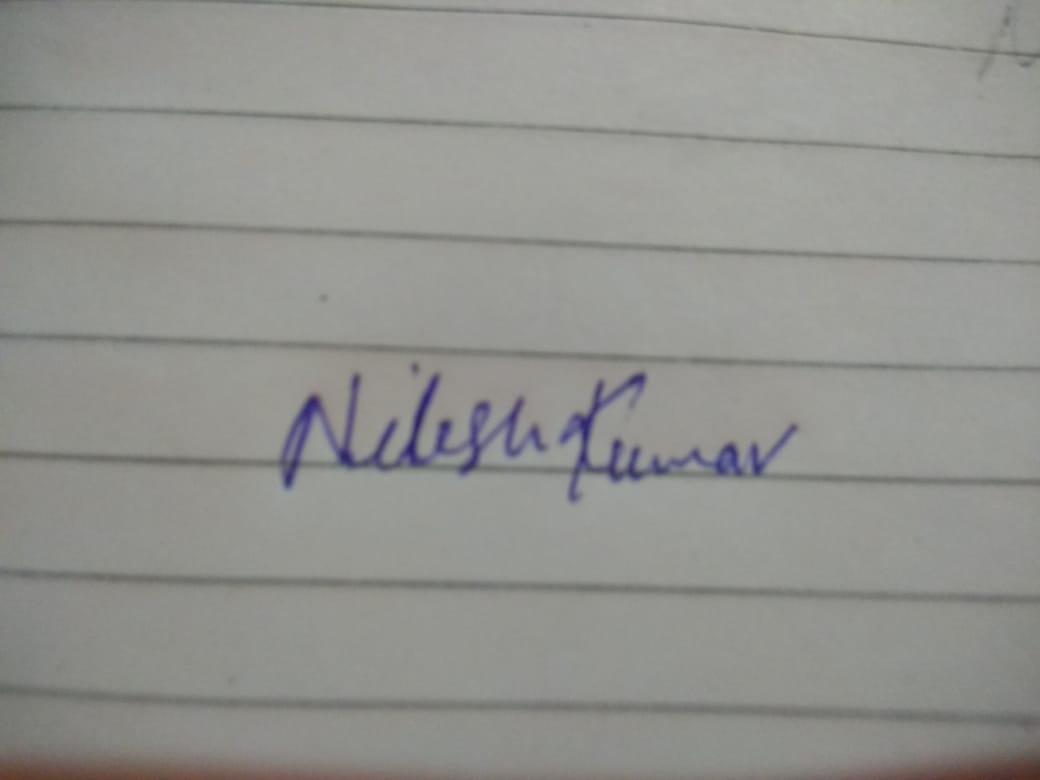 Nilesh Kumar